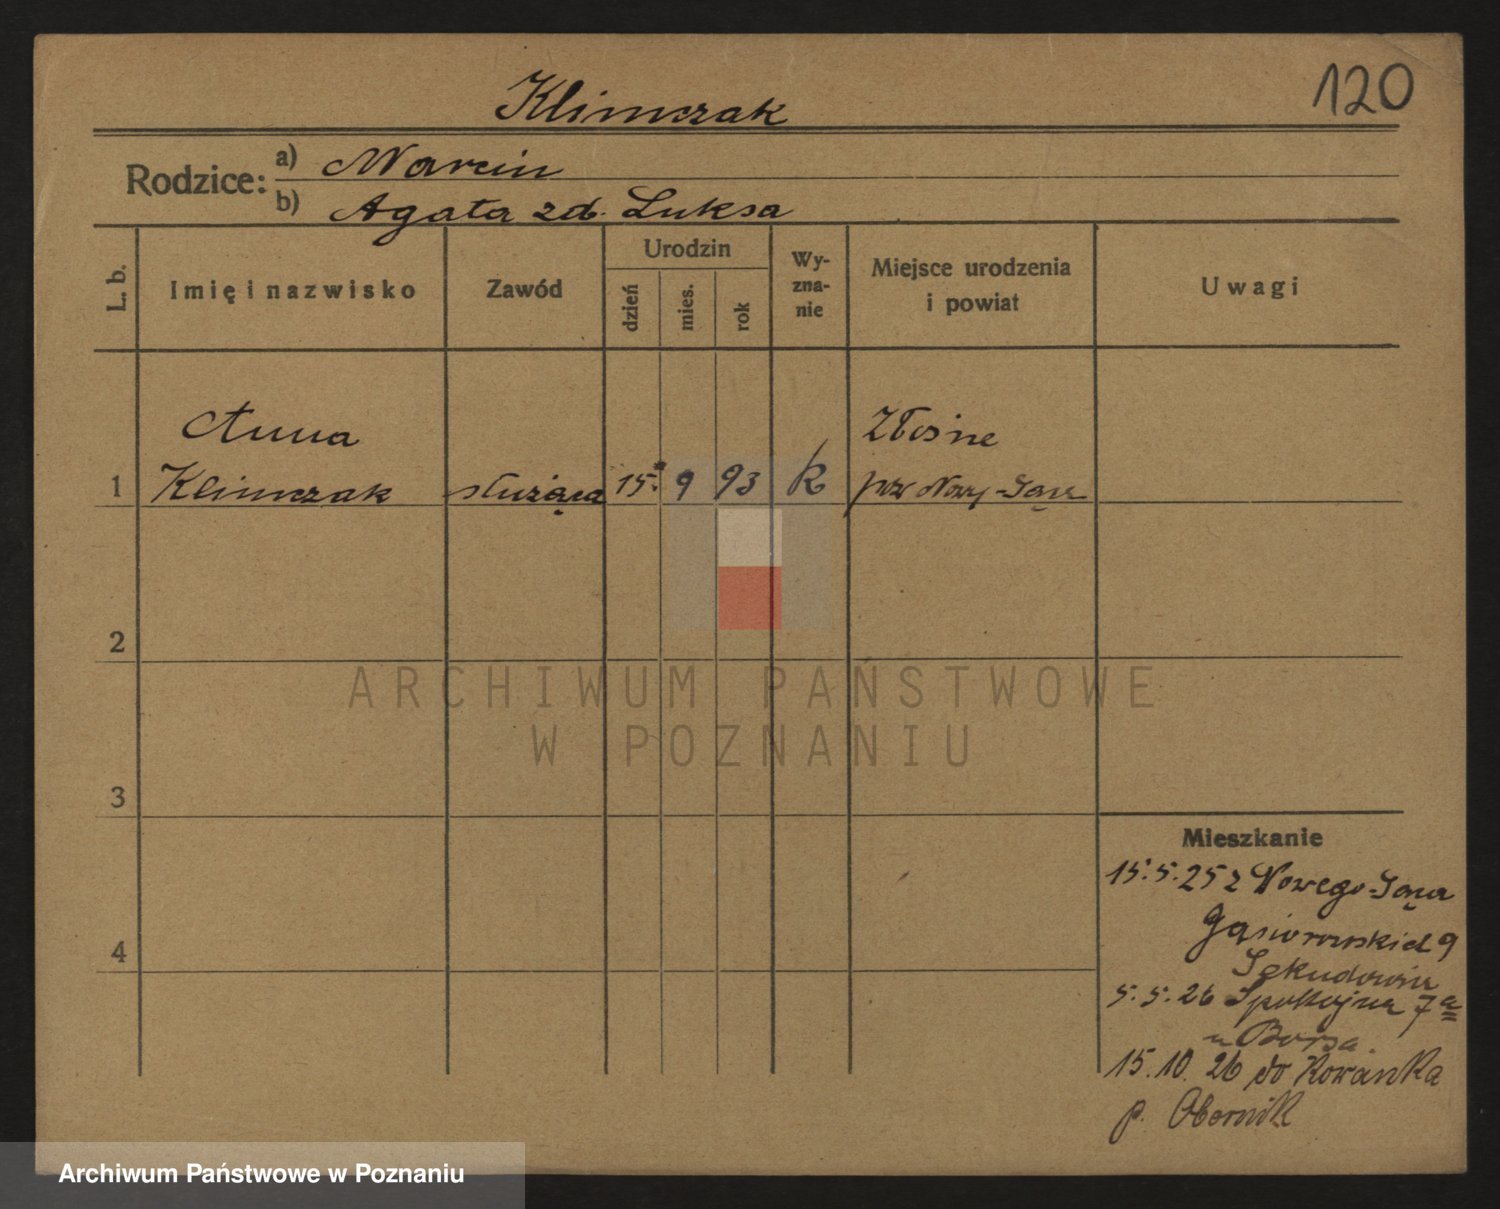 Klimczak
120
Rodzice: a) Marcin
b) Agata zd. Luksa
L. b.
Imię i nazwisko
Zawód
Urodzin
dzień
mies.
rok
Wy-
zna-
nie
Miejsce urodzenia
i powiat
Uwagi
Anna
Klimczak
1
służąca
15.
9
93
k
Złośne
pow Nowy-Sącz
2
3
4
Mieszkanie
15.5.25 z Nowego-Sącza
Gąsiorowskich 9
5.5.26 Spokojna 7a
u Borsa
15.10.26 do Kowanka
p. Obornik
ARCHIWUM PAŃSTWOWE
W POZNANIU
Archiwum Państwowe w Poznaniu